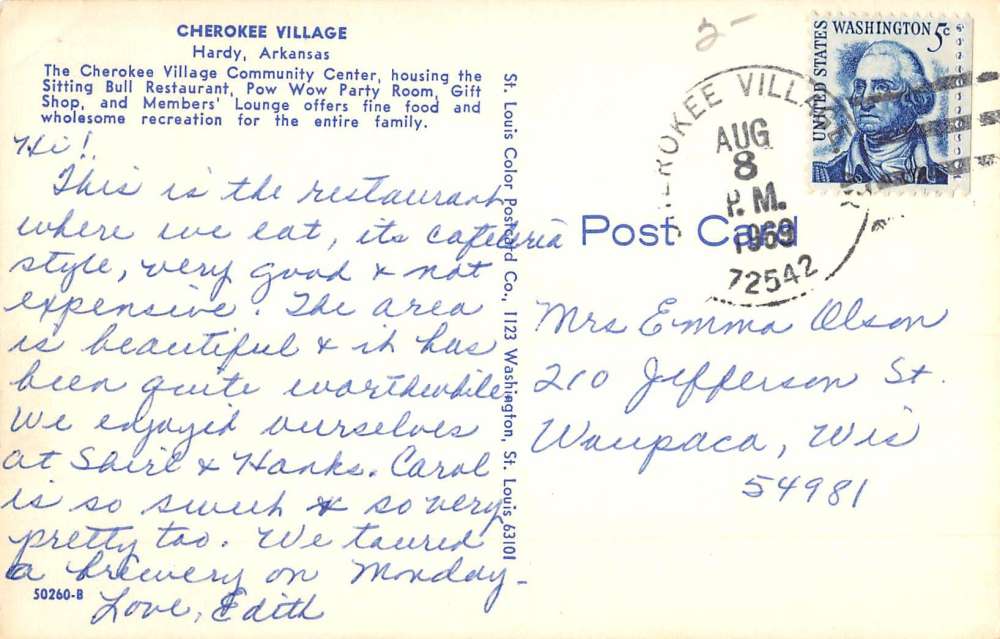 CHEROKEE VILLAGE
Hardy, Arkansas
The Cherokee Village Community Center, housing the
Sitting Bull Restaurant, Pow Wow Party Room, Gift
Shop, and Members' Lounge offers fine food and
wholesome recreation for the entire family.
Hi!
This is the restaurant
where we eat, its cafeteria
style, very good & not
expensive. The area
is beautiful & it has
been quite worthwhile
We enjoyed ourselves
at Shirl & Hanks. Carol
is so sweet & so very
pretty too. We toured
a brewery on Monday-
Love, Edith
50260-B
St. Louis Color Postcard Co., 1123 Washington, St. Louis 63101
2-
UNITED STATES
WASHINGTON 5c
CHEROKEE VILLAGE
AUG
8
P.M.
1969
72542
Post Card
Mrs Emma Olson
210 Jefferson St.
Waupaca, Wis
54981